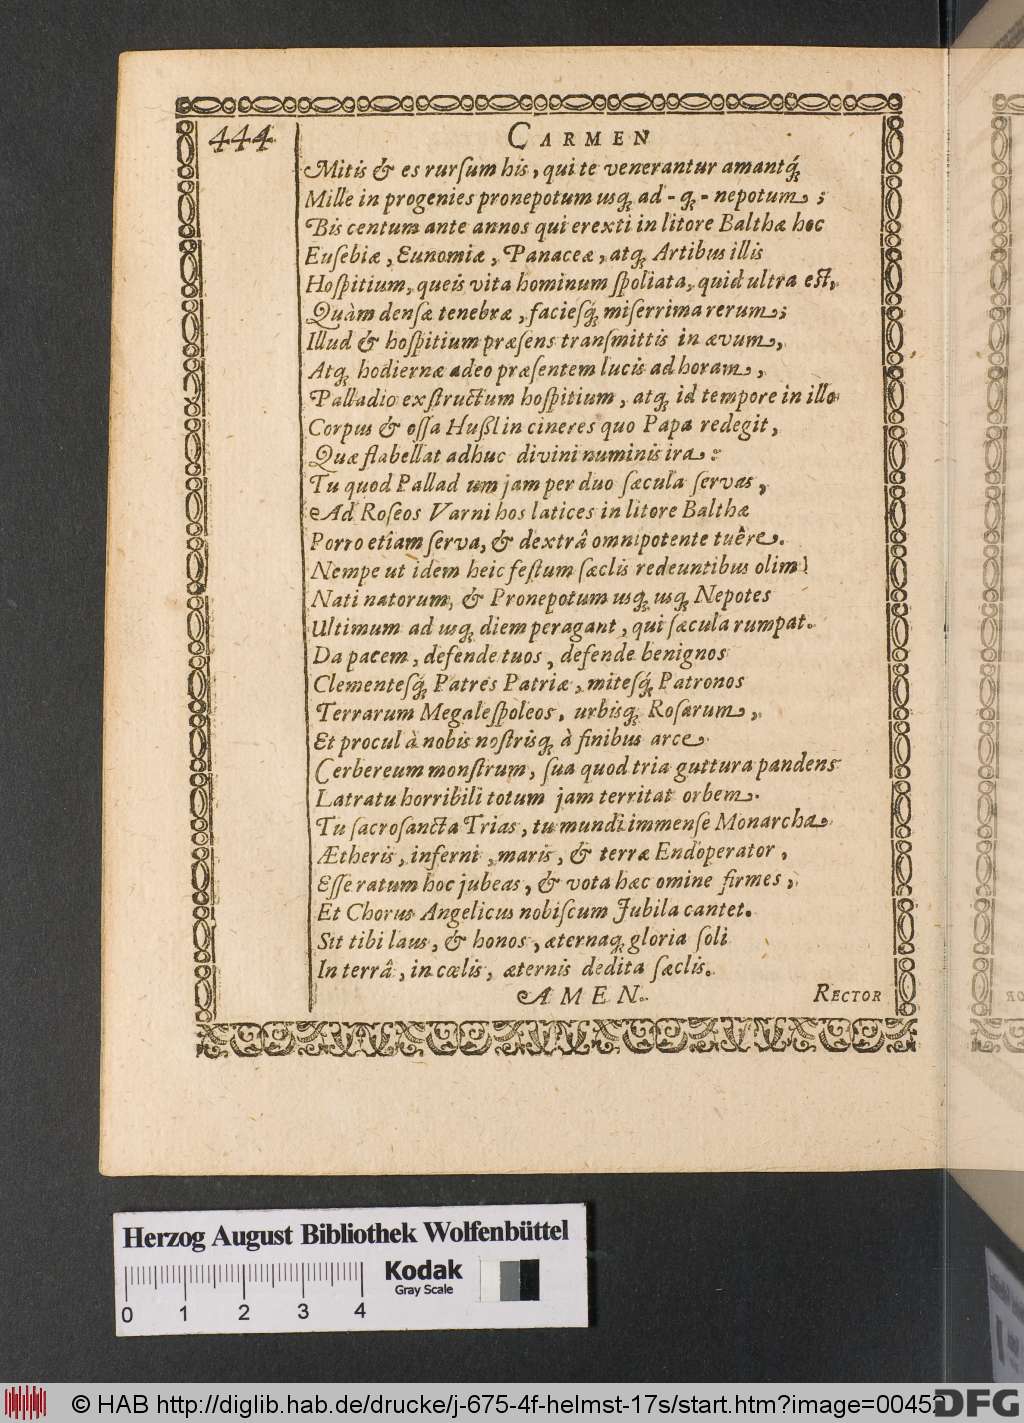 444
CARMEN
Mitis & es rursum his, qui te venerantur amantq́;
Mille in progenies pronepotum usq; ad-q;-nepotum;
Bis centum ante annos qui erexti in litore Balthæ hoc
Eusebiæ, Eunomiæ, Panaceæ, atq; Artibus illis
Hospitium, queis vita hominum spoliata, quid ultra est,
Quàm densæ tenebræ, faciesq́; miserrima rerum;
Illud & hospitium præsens transmittis in ævum,
Atq; hodiernæ adeo præsentem lucis ad horam,
Palladio exstructum hospitium, atq; id tempore in illo
Corpus & ossa Hussl in cineres quo Papa redegit,
Quæ flabellat adhuc divini numinis ira:
Tu quod Pallad um jam per duo sæcula servas,
Ad Roseos Varni hos latices in litore Balthæ
Porro etiam serva, & dextrâ omnipotente tuêre.
Nempe ut idem heic festum sæclis redeuntibus olim
Nati natorum, & Pronepotum usq; usq; Nepotes
Ultimum ad usq; diem peragant, qui sæcula rumpat.
Da pacem, defende tuos, defende benignos
Clementesq́; Patres Patriæ, mitesq́; Patronos
Terrarum Megalespoleos, urbisq; Rosarum,
Et procul à nobis nostrisq; à finibus arce
Cerbereum monstrum, sua quod tria guttura pandens
Latratu horribili totum jam territat orbem.
Tu sacrosancta Trias, tu mundi immense Monarcha
Ætheris, inferni, maris, & terræ Endoperator,
Esse ratum hoc jubeas, & vota hæc omine firmes,
Et Chorus Angelicus nobiscum Jubila cantet.
Sit tibi laus, & honos, æternaq; gloria soli
In terrâ, in cœlis, æternis dedita sæclis.
AMEN.
RECTOR
Herzog August Bibliothek Wolfenbüttel
Kodak
Gray Scale
0 1 2 3 4
© HAB http://diglib.hab.de/drucke/j-675-4f-helmst-17s/start.htm?image=00452
DFG